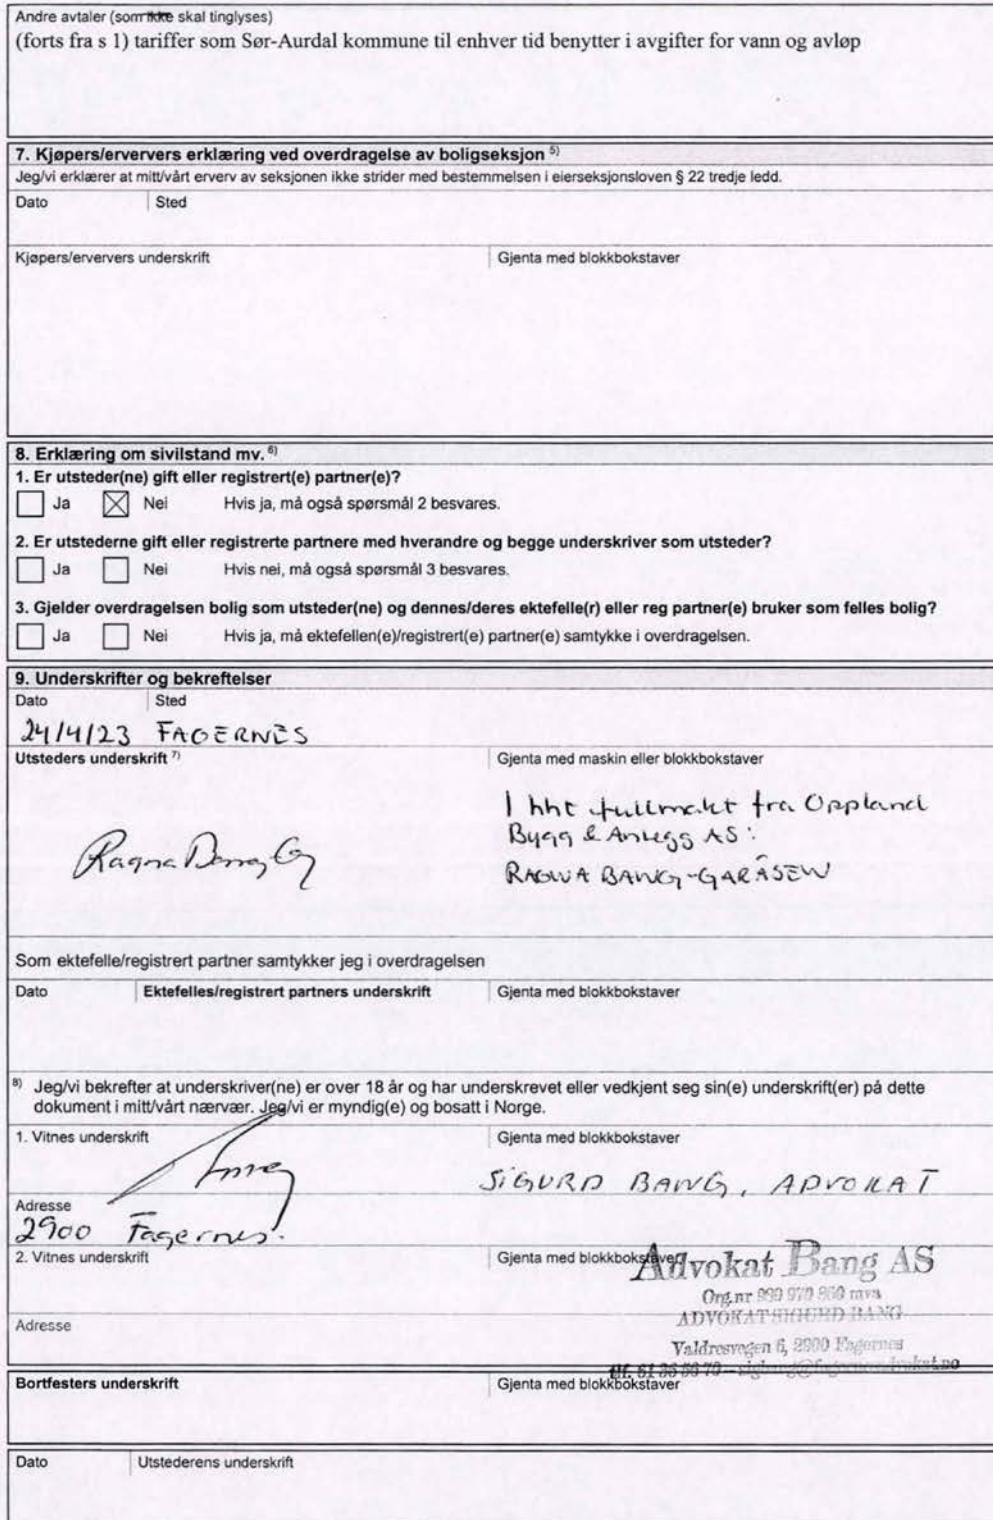 Andre avtaler (som ikke skal tinglyses)
(forts fra s 1) tariffer som Sør-Aurdal kommune til enhver tid benytter i avgifter for vann og avløp
7. Kjøpers/erververs erklæring ved overdragelse av boligseksjon 5)
Jeg/vi erklærer at mitt/vårt erverv av seksjonen ikke strider med bestemmelsen i eierseksjonsloven § 22 tredje ledd.
Dato Sted
Kjøpers/erververs underskrift Gjenta med blokkbokstaver
8. Erklæring om sivilstand mv. 6)
1. Er utsteder(ne) gift eller registrert(e) partner(e)?
Ja Nei Hvis ja, må også spørsmål 2 besvares.
2. Er utstederne gift eller registrerte partnere med hverandre og begge underskriver som utsteder?
Ja Nei Hvis nei, må også spørsmål 3 besvares.
3. Gjelder overdragelsen bolig som utsteder(ne) og dennes/deres ektefelle(r) eller reg partner(e) bruker som felles bolig?
Ja Nei Hvis ja, må ektefellen(e)/registrert(e) partner(e) samtykke i overdragelsen.
9. Underskrifter og bekreftelser
Dato Sted
24/4/23 FAGERNES
Utsteders underskrift 7) Gjenta med maskin eller blokkbokstaver
I hht fullmakt fra Oppland
Bygg & Anlegg AS:
Ragna Bang RAGNA BANG-GARÅSEN
Som ektefelle/registrert partner samtykker jeg i overdragelsen
Dato Ektefelles/registrert partners underskrift Gjenta med blokkbokstaver
8) Jeg/vi bekrefter at underskriver(ne) er over 18 år og har underskrevet eller vedkjent seg sin(e) underskrift(er) på dette
dokument i mitt/vårt nærvær. Jeg/vi er myndig(e) og bosatt i Norge.
1. Vitnes underskrift Gjenta med blokkbokstaver
SIGURD BANG, ADVOKAT
Adresse
2900 Fagernes.
2. Vitnes underskrift Gjenta med blokkbokstaver
Advokat Bang AS
Org.nr mva
ADVOKAT SIGURD BANG
Adresse
Valdresvegen 6, 2900 Fagernes
tlf.
Bortfesters underskrift Gjenta med blokkbokstaver
Dato Utstederens underskrift